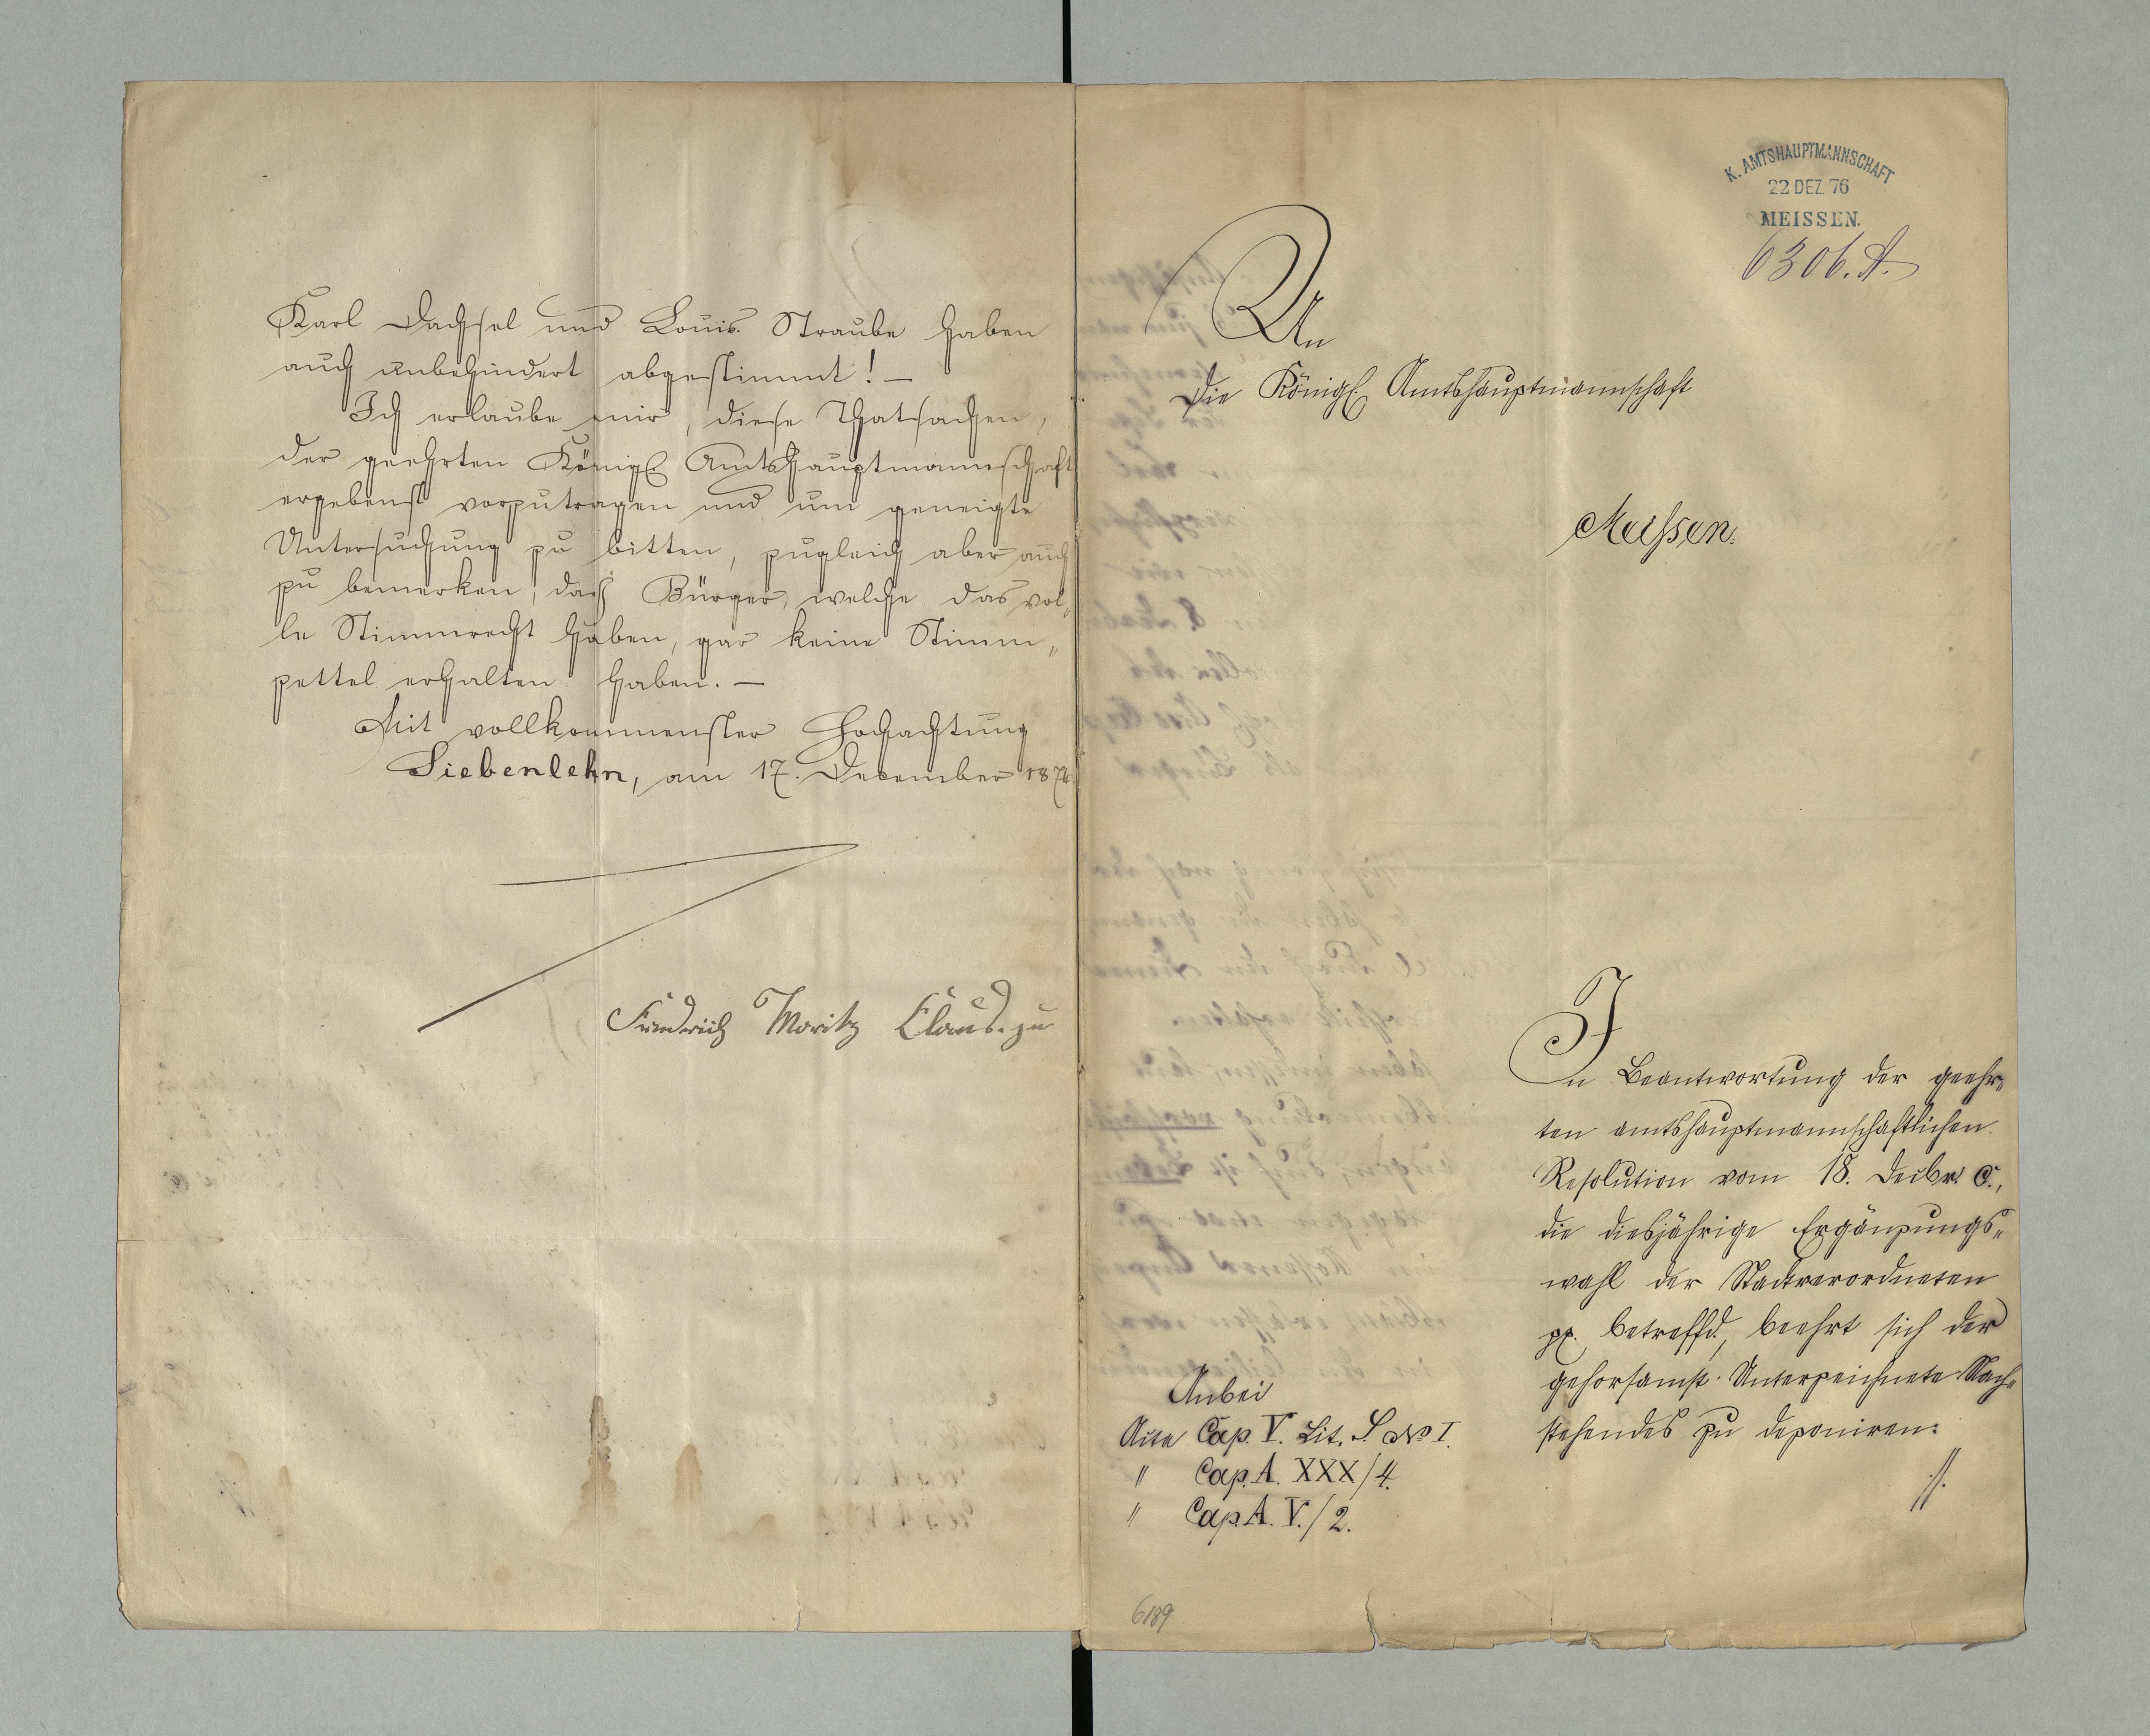 Karl Dachsel und Louis Straube haben
auch unbehindert abgestimmt! —
Ich erlaube mir, diese Thatsachen,
der geehrten Königl Amtshauptmannschaft
ergebenst vorzutragen und um geneigte
Untersuchung zu bitten, zugleich aber auch
zu bemerken, daß Bürger, welche das vol„
le Stimmrecht haben, gar keine Stimm„
zettel erhalten haben. —
Mit vollkommenster Hochachtung
Siebenlehn, am 17. December 1876.
Friedrich Moritz Claus. zu
K. AMTSHAUPTMANNSCHAFT
22 DEZ. 76
MEISSEN.
6306. A.
An
die Königl. Amtshauptmannschaft
Meissen.
In Beantwortung der geehr„
ten amtshauptmannschaftlichen
Resolution vom 18. Decbr. c.,
die diesjährige Ergänzungs„
wahl der Stadtverordneten
pp. betreffd., beehrt sich der
gehorsamst Unterzeichnete Nach„
stehendes zu deponiren:
./.
Anbei
Acta Cap. V. Lit. S. No I.
" Cap. A. XXX/4.
" Cap. A. V./2.
6189